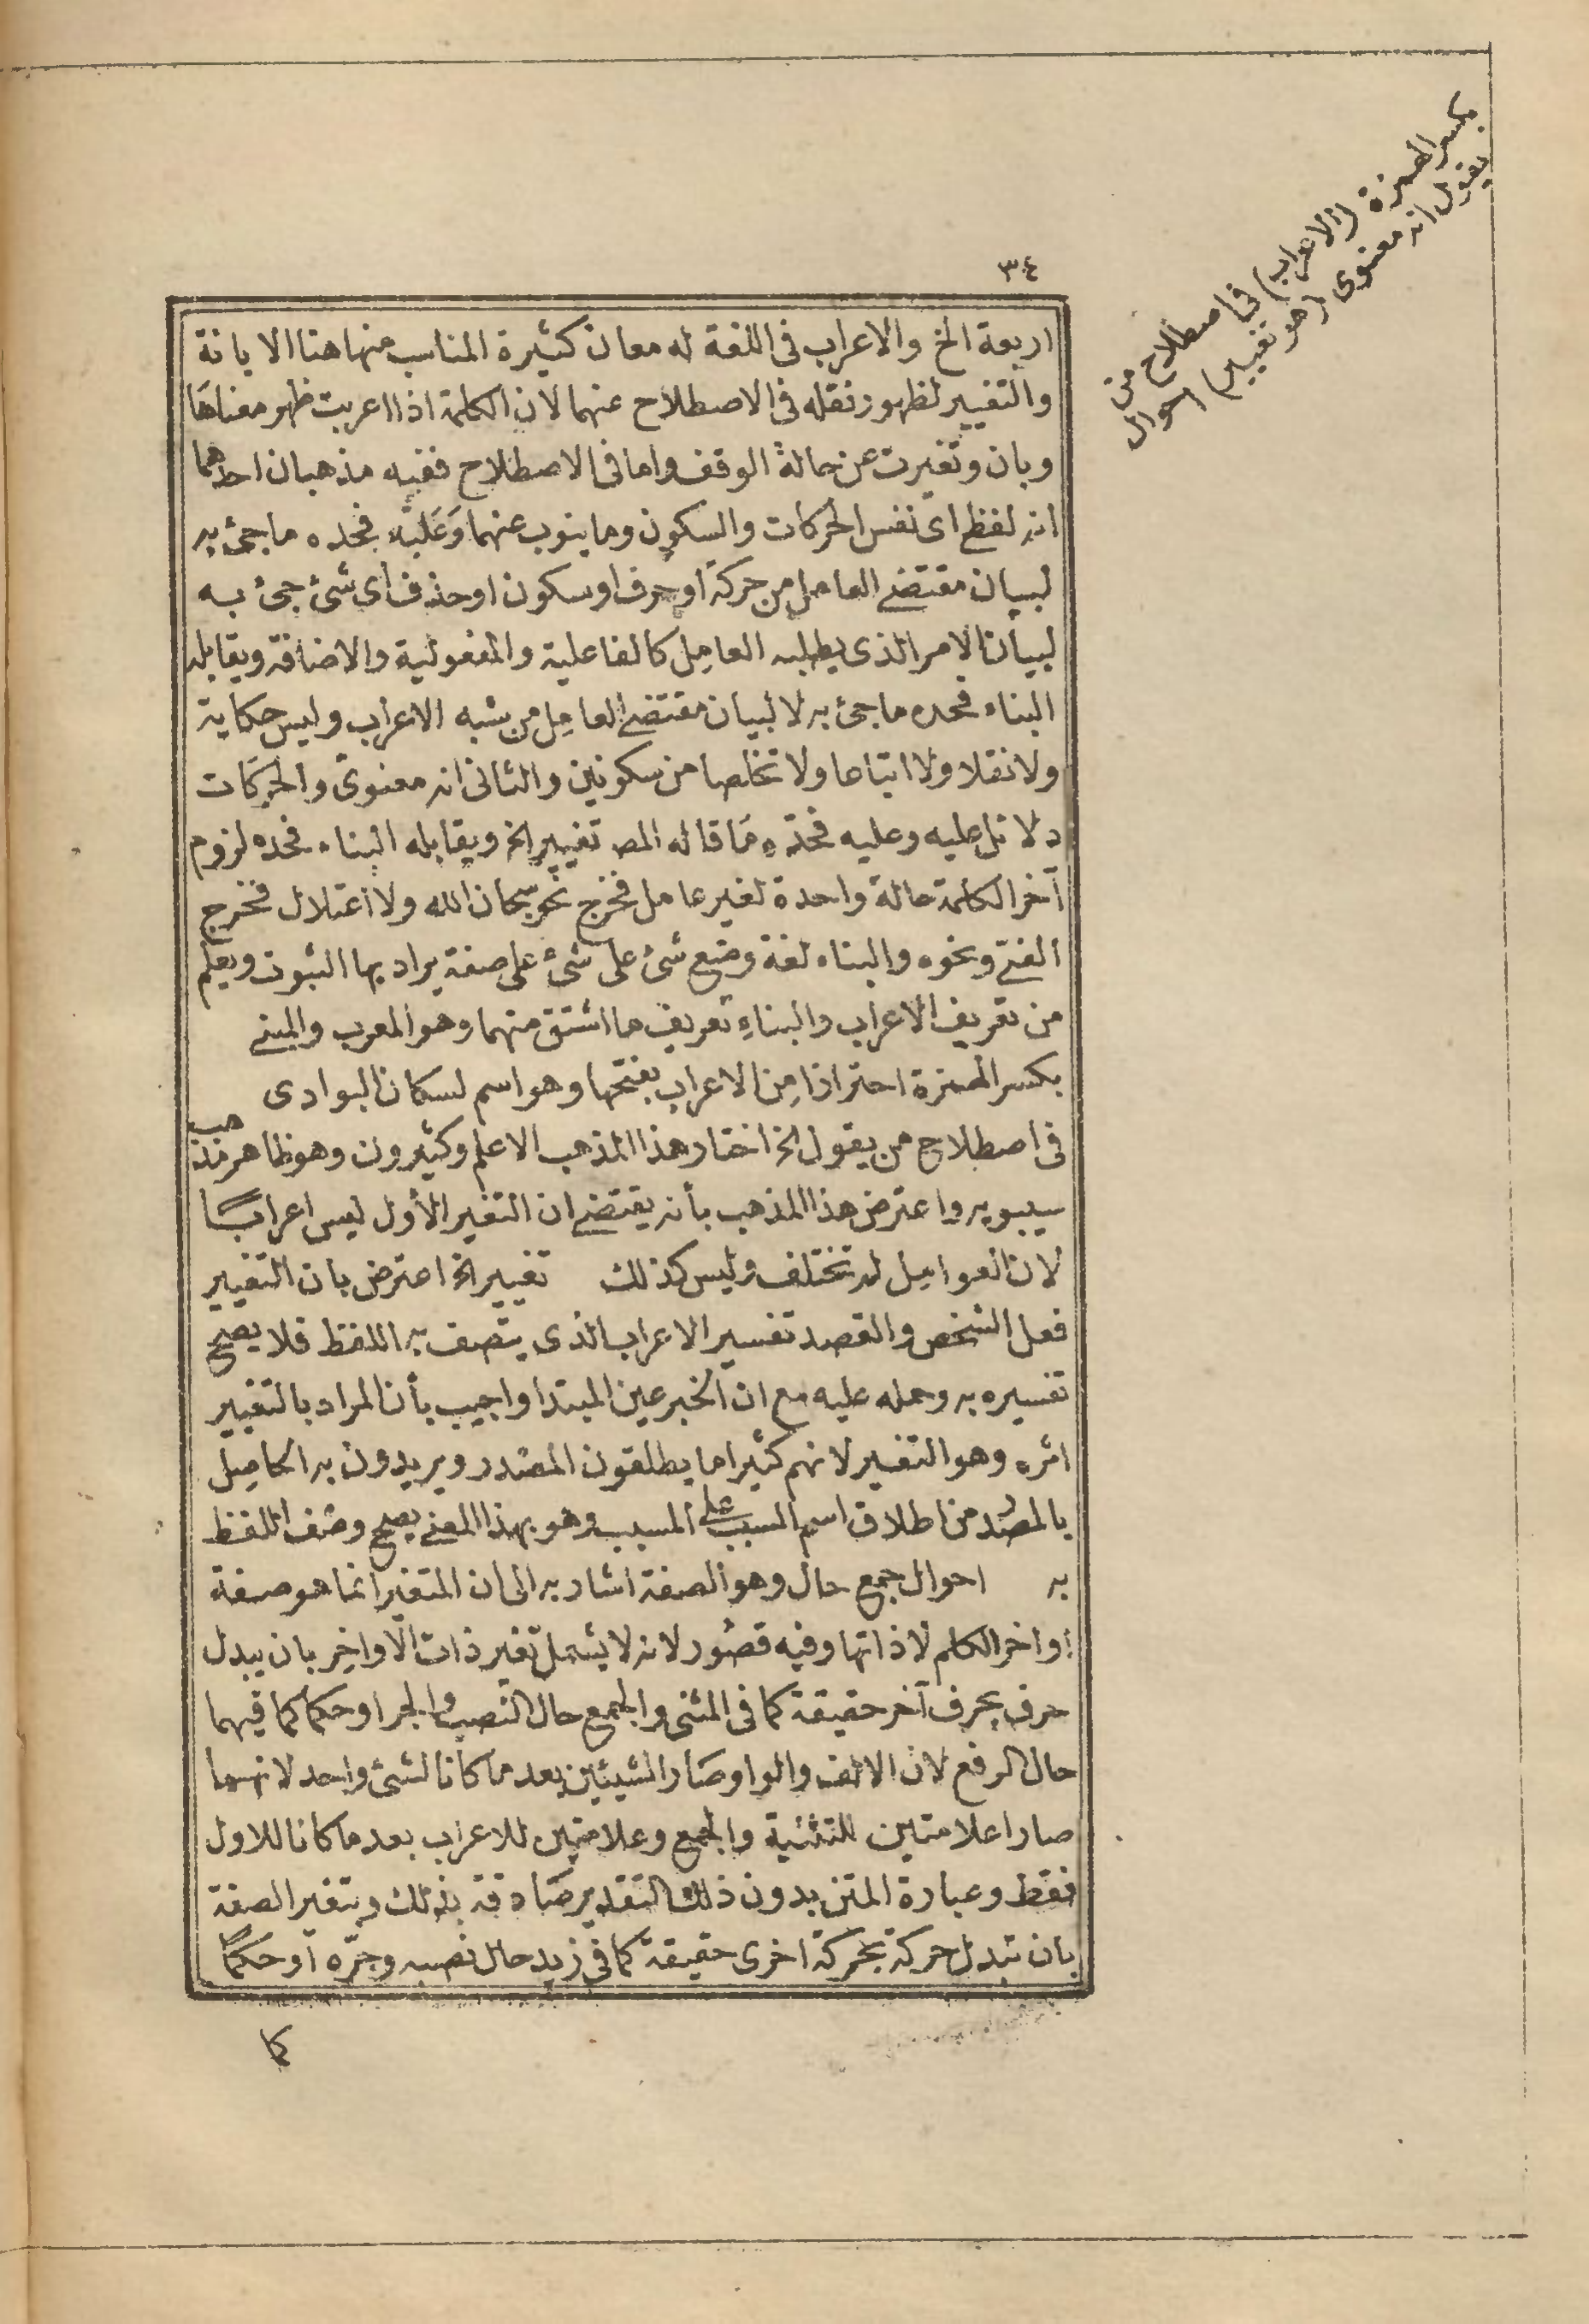 بكسر الهمزة (الاعراب) فى اصطلاح من
يقول انه معنوى (هو تغيير) احوال
٣٤
اربعة الخ والاعراب فى اللغة له معان كثيرة المناسب منها هنا الابانة
والتغيير لظهور نقله فى الاصطلاح عنهما لان الكلمة اذا اعربت ظهر معناها
وبان وتغيرت عن حالة الوقف واما فى الاصطلاح ففيه مذهبان احدهما
انه لفظى اى نفس الحركات والسكون وما ينوب عنهما وعليه فحده ماجئ به
لبيان مقتضى العامل من حركة او حرف او سكون او حذف اى شئ جئ به
لبيان الامر الذى يطلبه العامل كالفاعلية والمفعولية والاضافة ويقابله
البناء فحده ماجئ به لا لبيان مقتضى العامل من شبه الاعراب وليس حكاية
ولا نقلا ولا اتباعا ولا تخلصا من سكونين والثانى انه معنوى والحركات
دلائل عليه وعليه فحده ما قاله المص تغيير الخ ويقابله البناء فحده لزوم
آخر الكلمة حالة واحدة لغير عامل فخرج نحو سبحان الله ولا اعتلال فخرج
الفتى ونحوه والبناء لغة وضع شئ على شئ على صفة يراد بها الثبوت ويعلم
من تعريف الاعراب والبناء تعريف ما اشتق منهما وهو المعرب والمبنى
بكسر الهمزة احترازا من الاعراب بفتحها وهو اسم لسكان البوادى
فى اصطلاح من يقول الخ اختار هذا المذهب الاعلم وكثيرون وهو ظاهر مذهب
سيبويه واعترض هذا المذهب بأنه يقتضى ان التغير الأول ليس اعرابًا
لان العوامل لم تختلف وليس كذلك تغيير الخ اعترض بان التغيير
فعل الشخص والقصد تفسير الاعراب الذى يتصف به اللفظ فلا يصح
تفسيره به وحمله عليه مع ان الخبر عين المبتدا واجيب بأن المراد بالتغيير
اثره وهو التغير لانهم كثيرا ما يطلقون المصدر ويريدون به الحاصل
بالمصدر من اطلاق اسم السبب على المسبب وهو بهذا المعنى يصح وصف اللفظ
به احوال جمع حال وهو الصفة اشار به الى ان المتغير انما هو صفة
اواخر الكلم لا ذاتها وفيه قصور لانه لا يشمل تغير ذات الأواخر بان يبدل
حرف بحرف آخر حقيقة كما فى المثنى والجمع حال النصب والجر او حكما كما فيهما
حال الرفع لان الالف والواو صارا لشيئين بعد ما كانا لشئ واحد لانهما
صارا علامتين للتثنية والجمع وعلامتين للاعراب بعد ما كانا للاول
فقط وعبارة المتن بدون ذلك التقدير صادقة بذلك وبتغير الصفة
بان تبدل حركة بحركة اخرى حقيقة كما فى زيد حال نصبه وجرّه او حكمًا
كما